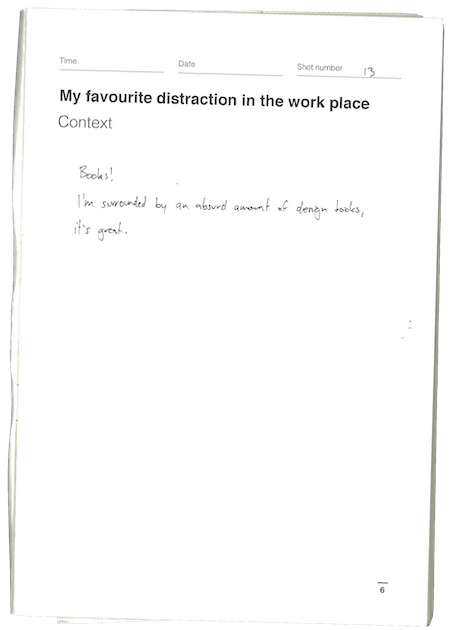 Time
Date
Shot number 13
My favourite distraction in the work place
Context
Books!
I'm surrounded by an absurd amount of design books,
it's great.
6